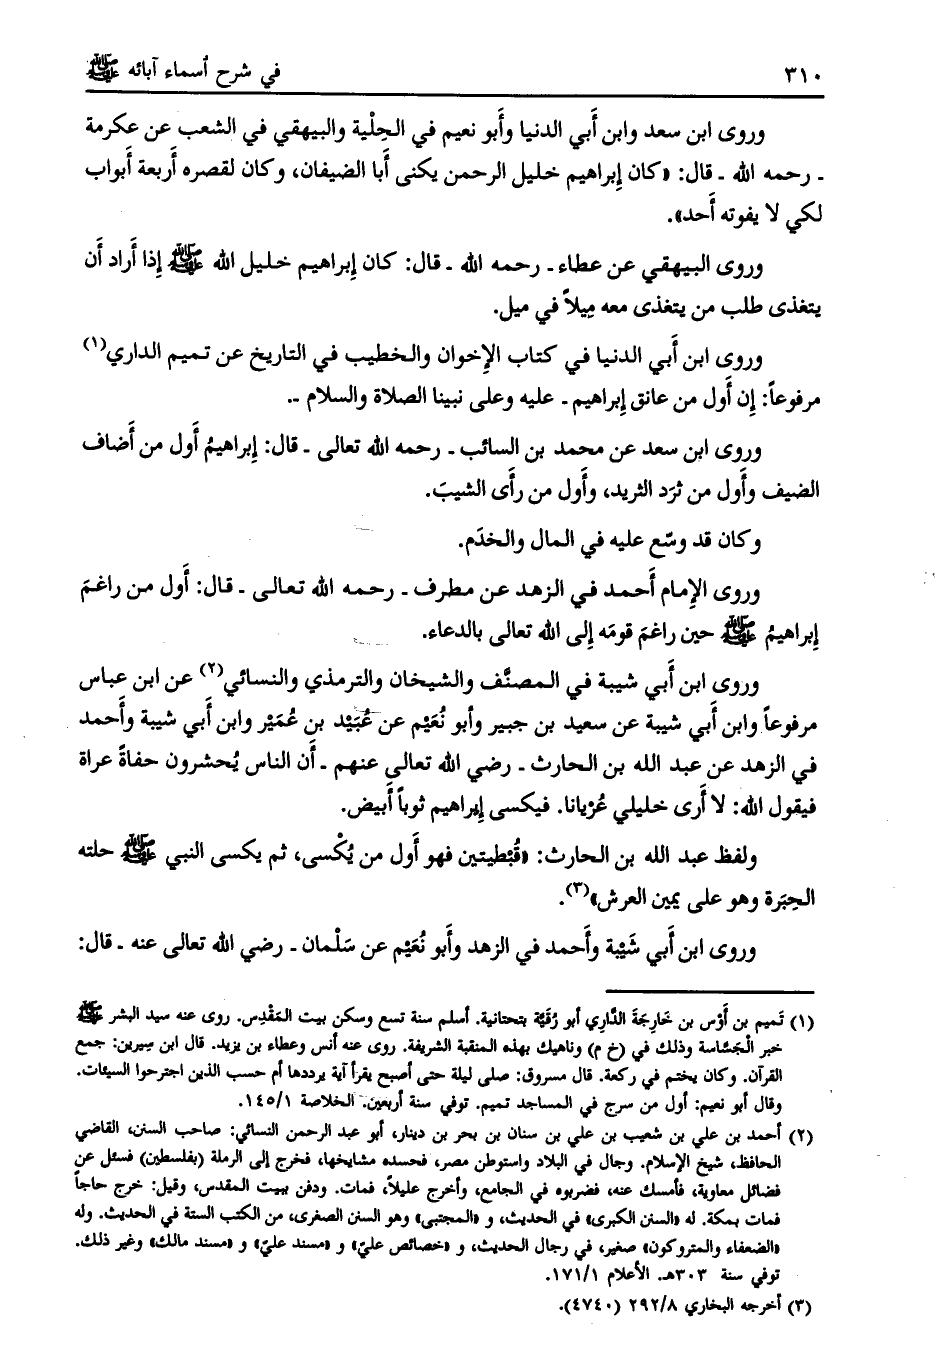 ٣١٠
في شرح أسماء آبائه ﷺ
وروى ابن سعد وابن أَبي الدنيا وأَبو نعيم في الحِلْية والبيهقي في الشعب عن عكرمة
ـ رحمه الله ـ قال: «كان إبراهيم خليل الرحمن يكنى أَبا الضيفان، وكان لقصره أَربعة أَبواب
لكي لا يفوته أَحد».
وروى البيهقي عن عطاء ـ رحمه الله ـ قال: كان إبراهيم خليل الله ﷺ إذا أَراد أَن
يتغذى طلب من يتغذى معه مِيلاً في ميل.
وروى ابن أَبي الدنيا في كتاب الإخوان والخطيب في التاريخ عن تميم الداري(١)
مرفوعاً: إن أَول من عانق إبراهيم ـ عليه وعلى نبينا الصلاة والسلام ـ.
وروى ابن سعد عن محمد بن السائب ـ رحمه الله تعالى ـ قال: إبراهيمُ أَول من أَضاف
الضيف وأَول من ثرَد الثريد، وأَول من رأَى الشيبَ.
وكان قد وسّع عليه في المال والخدَم.
وروى الإمام أَحمد في الزهد عن مطرف ـ رحمه الله تعالى ـ قال: أَول من راغمَ
إبراهيمُ ﷺ حين راغمَ قومَه إلى الله تعالى بالدعاء.
وروى ابن أَبي شيبة في المصنَّف والشيخان والترمذي والنسائي(٢) عن ابن عباس
مرفوعاً وابن أَبي شيبة عن سعيد بن جبير وأبو نُعَيْم عن عُبَيْد بن عُمَيْر وابن أَبي شيبة وأَحمد
في الزهد عن عبد الله بن الحارث ـ رضي الله تعالى عنهم ـ أَن الناس يُحشرون حفاةً عراة
فيقول الله: لا أَرى خليلي عُرْيانا. فيكسى إبراهيم ثوباً أَبيض.
ولفظ عبد الله بن الحارث: «قُبْطيتين فهو أَول من يُكْسى، ثم يكسى النبي ﷺ حلته
الحِبَرة وهو على يمين العرش»(٣).
وروى ابن أَبي شَيْبة وأَحمد في الزهد وأَبو نُعَيْم عن سَلْمان ـ رضي الله تعالى عنه ـ قال:
(١) تَميم بن أَوْس بن خَارِجَةَ الدَّاري أبو رُقَيَّة بتحتانية. أسلم سنة تسع وسكن بيت المَقْدِس. روى عنه سيد البشر ﷺ
خبر الْجَسَّاسة وذلك في (خ م) وناهيك بهذه المنقبة الشريفة. روى عنه أنس وعطاء بن يزيد. قال ابن سِيرين: جمع
القرآن. وكان يختم في ركعة. قال مسروق: صلى ليلة حتى أصبح يقرأ آية يرددها أم حسب الذين اجترحوا السيئات.
وقال أبو نعيم: أول من سرج في المساجد تميم. توفي سنة أربعين. الخلاصة ١٤٥/١.
(٢) أحمد بن علي بن شعيب بن علي بن سنان بن بحر بن دينار، أبو عبد الرحمن النسائي: صاحب السنن، القاضي
الحافظ، شيخ الإسلام. وجال في البلاد واستوطن مصر، فحسده مشايخها، فخرج إلى الرملة (بفلسطين) فسئل عن
فضائل معاوية، فأمسك عنه، فضربوه في الجامع، وأخرج عليلاً، فمات. ودفن ببيت المقدس، وقيل: خرج حاجاً
فمات بمكة. له «السنن الكبرى» في الحديث، و «المجتبى» وهو السنن الصغرى، من الكتب الستة في الحديث. وله
«الضعفاء والمتروكون» صغير، في رجال الحديث، و «خصائص عليّ» و «مسند عليّ» و «مسند مالك» وغير ذلك.
توفي سنة ٣٠٣هـ. الأعلام ١٧١/١.
(٣) أخرجه البخاري ٢٩٢/٨ (٤٧٤٠).